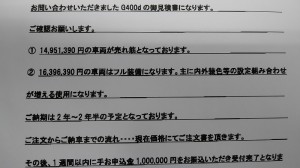 お問い合わせいただきました G400d の御見積書になります。
ご確認お願いします。
① 14,951,390 円の車両が売れ筋となっております。
② 16,396,390 円の車両はフル装備になります。主に内外装色等の設定組み合わせ
が増える使用になります。
ご納期は2年～2年半の予定となっております。
ご注文からご納車までの流れ・・・・現在価格にてご注文書を頂きます。
その後、1週間以内に手お申込金 1,000,000 円をお振込いただき受付完了となり